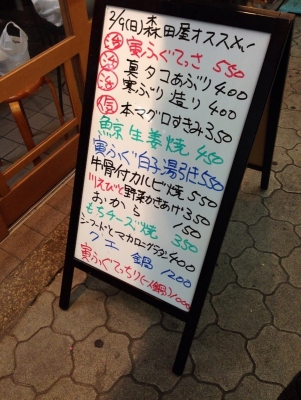 2/9(日)森田屋オススメ!
活 寒ふぐてっさ 550
活 真タコあぶり 400
活 寒ぶり造り 400
信 本マグロすきみ 350
鯨生姜焼 450
寅ふぐ白子湯引き 550
牛骨付カルビ焼 550
川えびと野菜かきあげ 350
おから 150
もちチーズ焼 350
シーフードとマカロニグラタン 400
クエ鍋 1200
寅ふぐてっちり(一人鍋) 1000